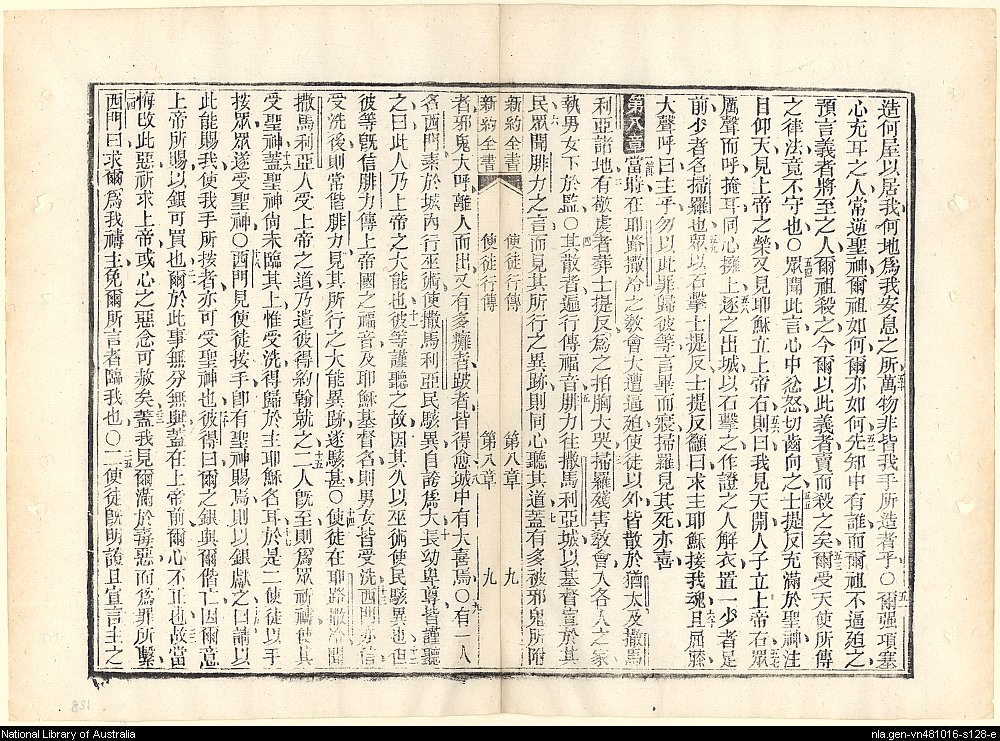 造何屋以居我何地爲我安息之所萬物非皆我手所造者乎○爾强項塞
心充耳之人常逆聖神爾祖如何爾亦如何先知中有誰而爾祖不逼迫之
預言義者將至之人爾祖殺之今爾以此義者賣而殺之矣爾受天使所傳
之律法竟不守也○眾聞此言心中忿怒切齒向之士提反充滿於聖神注
目仰天見上帝之榮又見耶穌立上帝右則曰我見天開人子立上帝右眾
厲聲而呼掩耳同心擁上逐之出城以石擊之作證之人解衣置一少者足
前少者名掃羅也眾以石擊士提反士提反籲曰求主耶穌接我魂且屈膝
大聲呼曰主乎勿以此罪歸彼等言畢而寢掃羅見其死亦喜
第八章當時在耶路撒冷之教會大遭逼迫使徒以外皆散於猶太及撒馬
利亞諸地有敬虔者葬士提反爲之拍胸大哭掃羅殘害教會入各人之家
執男女下於監○其散者遍行傳福音腓力往撒馬利亞城以基督宣於其
民眾聞腓力之言而見其所行之異跡則同心聽其道蓋有多被邪鬼所附
新約全書 使徒行傳 第八章 九
新約全書 使徒行傳 第八章 九
者邪鬼大呼離人而出又有多癱者跛者皆得愈城中有大喜焉○有一人
名西門素於城內行巫術使撒馬利亞民駭異自誇爲大長幼卑尊皆謹聽
之曰此人乃上帝之大能也彼等謹聽之故因其久以巫術使民駭異也但
彼等旣信腓力傳上帝國之福音及耶穌基督名則男女皆受洗西門亦信
受洗後則常偕腓力見其所行之大能異跡遂駭甚○使徒在耶路撒冷聞
撒馬利亞人受上帝之道乃遣彼得約翰就之二人旣至則爲眾祈禱使其
受聖神蓋聖神尙未臨其上惟受洗得歸於主耶穌名耳於是二使徒以手
按眾眾遂受聖神○西門見使徒按手卽有聖神賜焉則以銀獻之曰請以
此能賜我使我手所按者亦可受聖神也彼得曰爾之銀與爾偕亡因爾意
上帝所賜以銀可買也爾於此事無分無與蓋在上帝前爾心不正也故當
悔改此惡祈求上帝或心之惡念可赦矣蓋我見爾滿於毒惡而爲罪所繫
西門曰求爾爲我禱主免爾所言者臨我也○二使徒旣明證且宣言主之
National Library of Australia
nla.gen-vn481016-s128-e